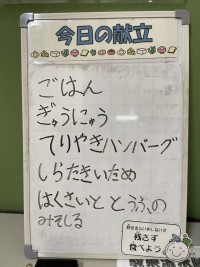 今日の献立
ごはん
ぎゅうにゅう
てりやきハンバーグ
しらたきいため
はくさいと とうふの
みそしる
好ききらいをしないで
残さず
食べよう